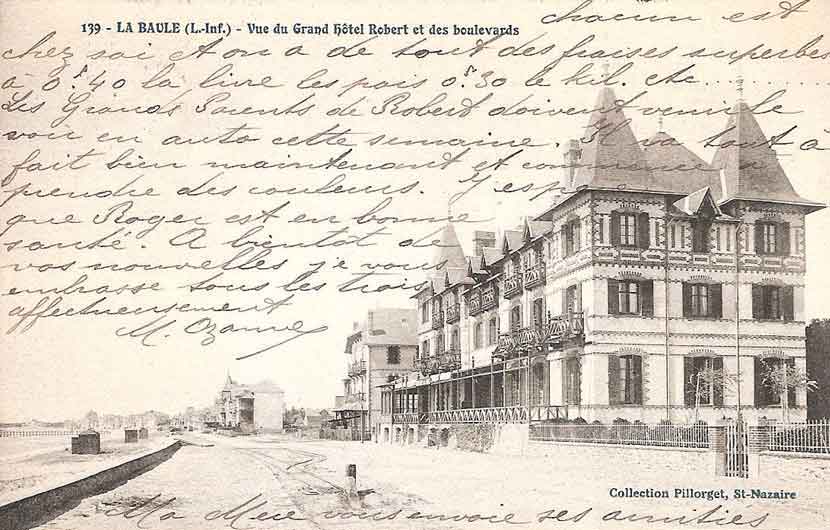 139 - LA BAULE (L.-Inf.) - Vue du Grand Hôtel Robert et des boulevards
chacun est
chez soi et on a de tout des fraises superbes
à 0f.40 la livre les pois 0f.30 le kil. etc.......
Les Grands Parents de Robert doivent venir le
voir en auto cette semaine. Il va tout à
fait bien maintenant et commence à
prendre des couleurs. J'espère
que Roger est en bonne
santé. A bientôt de
vos nouvelles je vous
embrasse tous les trois
affectueusement
M. Ozanne
Collection Pillorget, St-Nazaire
Ma Mère vous envoie ses amitiés